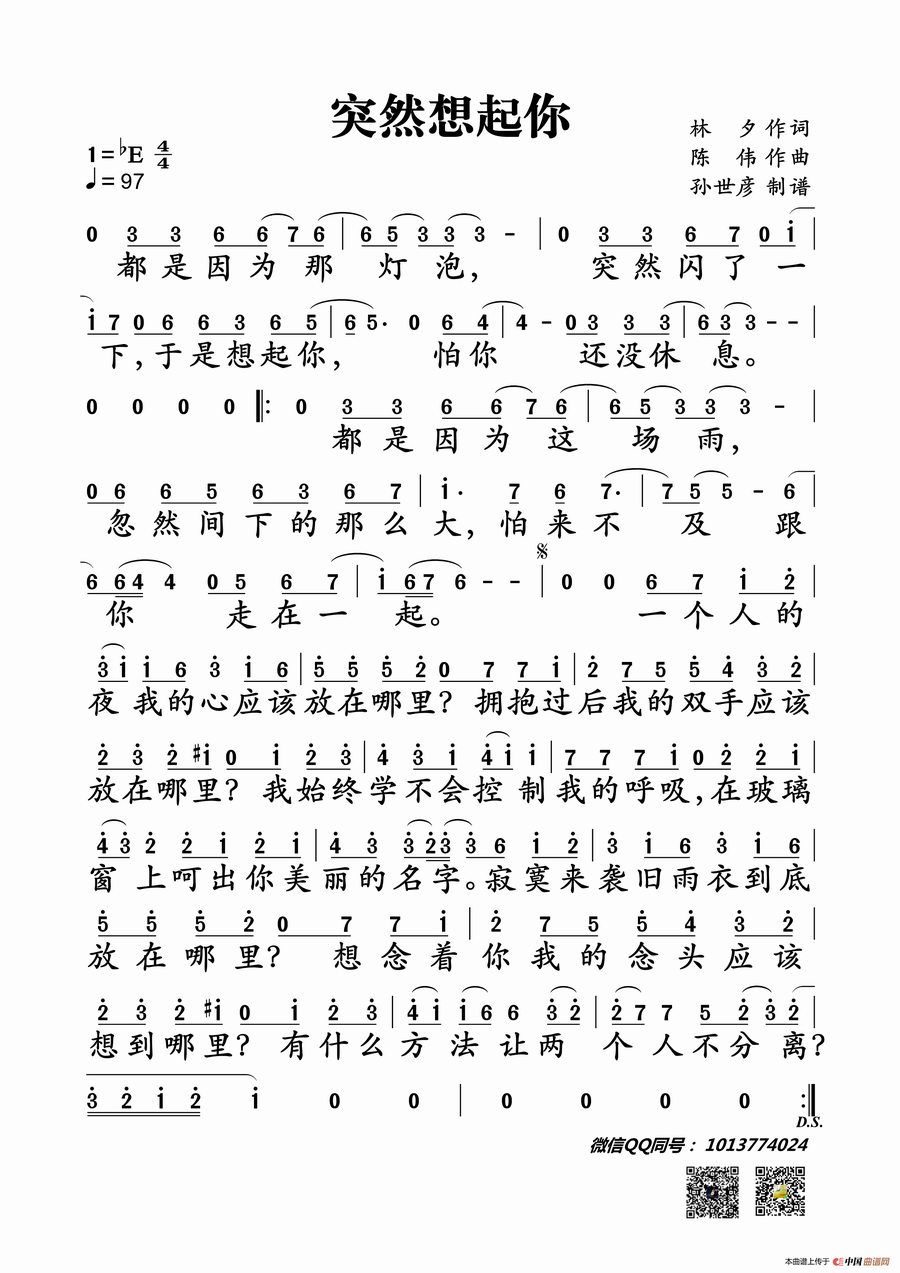 突然想起你
林 夕 作词
1=♭E 4/4
陈 伟 作曲
♩= 97
孙世彦 制谱
0 3 3 6 6 7 6 | 6 5 3 3 3 - | 0 3 3 6 7 0 i |
都是因为那灯泡, 突然闪了一
i 7 0 6 6 3 6 5 | 6 5· 0 6 4 | 4 - 0 3 3 3 | 6 3 3 - - |
下,于是想起你, 怕你 还没休息。
0 0 0 0 ‖: 0 3 3 6 6 7 6 | 6 5 3 3 3 - |
都是因为这场雨,
0 6 6 5 6 3 6 7 | i· 7 6 7· | 7 5 5 - 6 |
忽然间下的那么大,怕来不及 跟
6 6 4 4 0 5 6 7 | i 6 7 6 - - | 0 0 6 7 i 2 |
你 走在一起。 一个人的
3 i i 6 3 i 6 | 5 5 5 2 0 7 7 i | 2 7 5 5 4 3 2 |
夜 我的心应该放在哪里? 拥抱过后我的双手应该
2 3 2 #i 0 i 2 3 | 4 3 i 4 i i | 7 7 7 i 0 2 2 i |
放在哪里? 我始终学不会控 制我的呼吸,在玻璃
4 3 2 2 i 2 i | 4 3 3 2 3 3 6 i 2 | 3 i 6 3 i 6 |
窗 上呵出你美丽的名字。寂寞来袭旧雨衣到底
5 5 5 2 0 7 7 i | 2 7 5 5 4 3 2 |
放在哪里? 想念着你我的念头应该
2 3 2 #i 0 i 2 3 | 4 i i 6 6 3 2 | 2 7 7 5 2 3 2 |
想到哪里? 有什么方法让两 个人不分离?
3 2 i 2 i 0 0 | 0 0 0 0 :‖
D.S.
微信QQ同号: 1013774024
本曲谱上传于 中国曲谱网